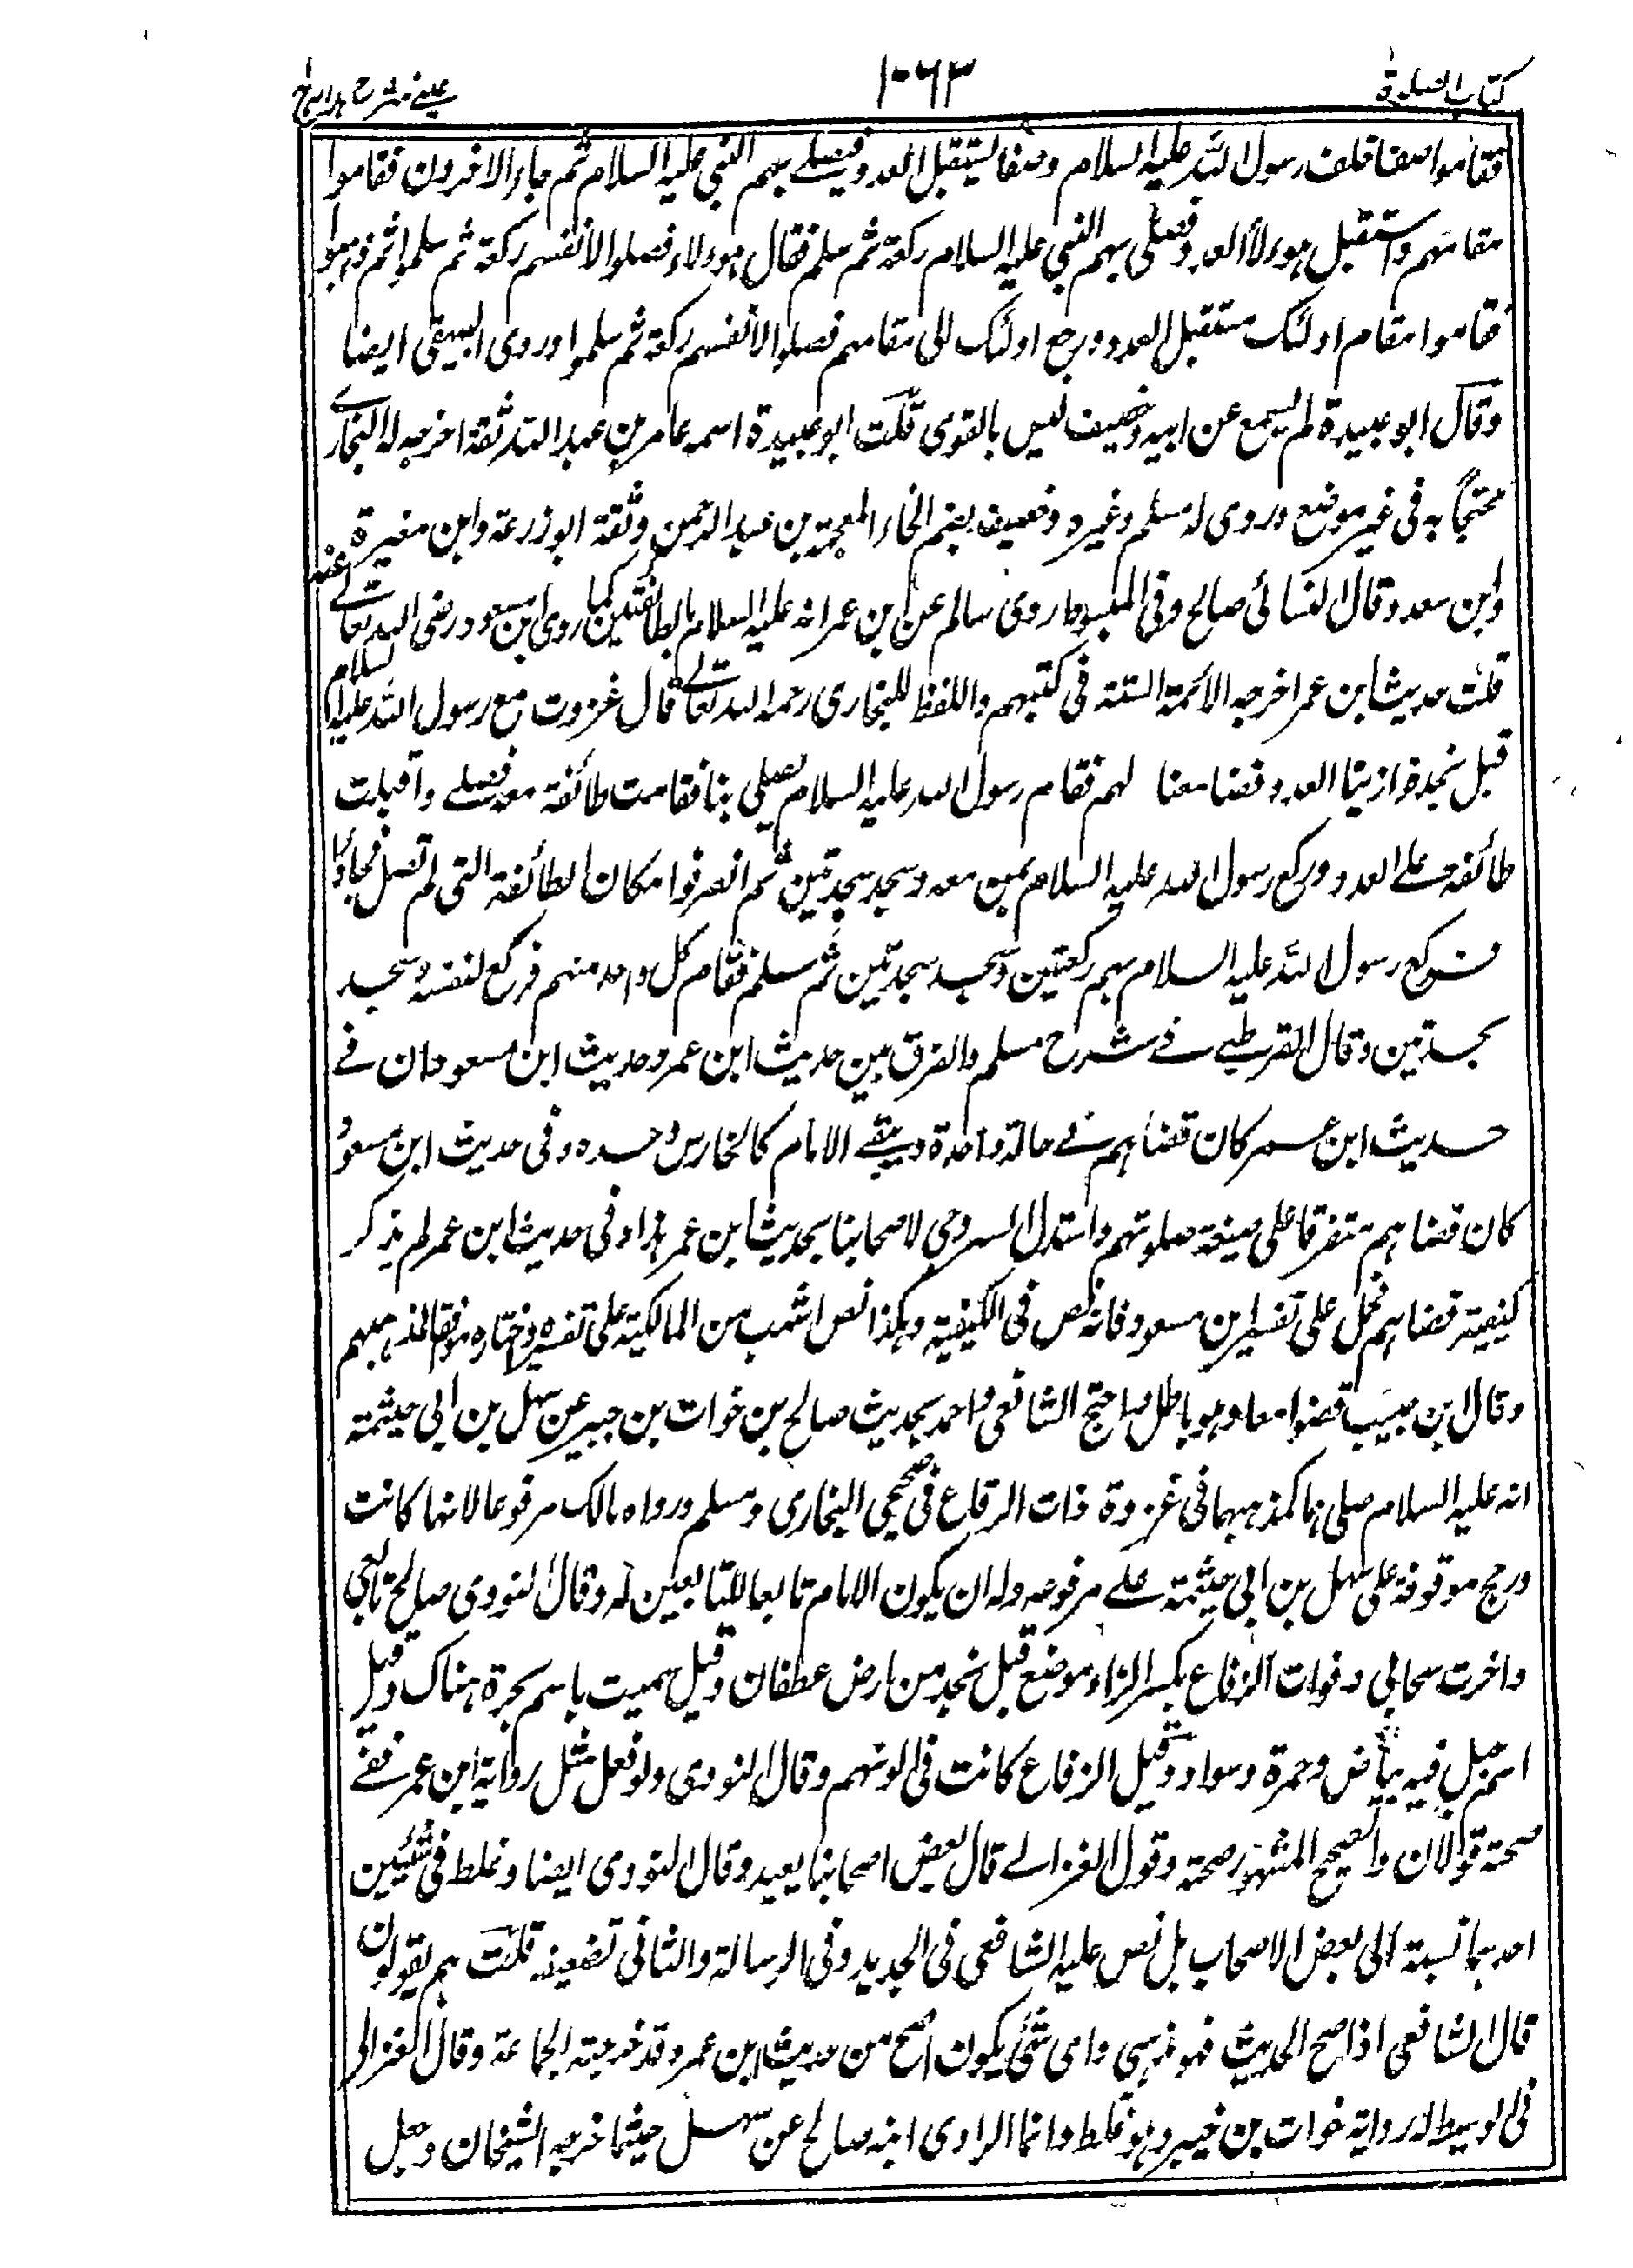 كتاب الصلوة
١٠٦٣
عيني شرح هدايه ج ا
فقاموا صفا خلف رسول الله عليه السلام وصفا يستقبل العدو فيصلي بهم النبي عليه السلام ثم جاء الاخرون فقاموا
مقامهم واستقبل هؤلاء العدو فصلى بهم النبي عليه السلام ركعة ثم سلم فقال هؤلاء فصلوا لانفسهم ركعة ثم سلموا ثم ذهبوا
فقاموا مقام اولئك مستقبل العدو ورجع اولئك الى مقامهم فصلوا لانفسهم ركعة ثم سلموا وروى البيهقي ايضا
وقال ابو عبيدة لم يسمع عن ابيه وخصيف ليس بالقوى قلت ابو عبيدة اسمه عامر بن عبد الله ثقة اخرجه له البخاري
محتجا به في غير موضع وروى له مسلم وغيره وخصيف بضم الخاء المعجمة بن عبد الرحمن وثقة ابو زرعة وابن مغيرة
وابن سعد وقال النسائي صالح وفي المبسوط روى سالم عن ابن عمر انه عليه السلام بالطائفتين كما روى ابن مسعود رضي الله تعالى عنه
قلت حديث ابن عمر اخرجه الائمة الستة في كتبهم واللفظ للبخاري رحمه الله تعالى قال غزوت مع رسول الله عليه السلام
قبل نجد فوازينا العدو فصنا معنا لهم فقام رسول الله عليه السلام يصلي بنا فقامت طائفة معه فصلى واقبلت
طائفة على العدو وركع رسول الله عليه السلام بمن معه وسجد سجدتين ثم انصرفوا مكان الطائفة التي لم تصل فجاؤا
فركع رسول الله عليه السلام بهم ركعتين وسجد سجدتين ثم سلم فقام كل واحد منهم فركع لنفسه وسجد
سجدتين وقال القرطبي في شرح مسلم والفرق بين حديث ابن عمر وحديث ابن مسعود ان في
حديث ابن عمر كان قضاهم في حالة واحدة ويبقى الامام كالحارس وحده وفي حديث ابن مسعود
كان قضاهم متفرقا على صيغة صلوتهم واستدل السروجي لاصحابنا بحديث ابن عمر هذا وفي حديث ابن عمر لم يذكر
كيفية قضاهم فحمل على تفسير ابن مسعود فانه نص في الكيفية وهكذا نص اشهب من المالكية على تفسيره واختاره موافقا لمذهبهم
وقال ابن حبيب قضوا معا وهو باطل واحتج الشافعي واحمد بحديث صالح بن خوات بن جبير عن سهل بن ابي حيثمة
انه عليه السلام صلى بها كمذهبهما في غزوة ذات الرقاع في صحيحي البخاري ومسلم ورواه مالك مرفوعا لانها كانت
ورجح موقوفة على سهل بن ابي حيثمة على مرفوعه وله ان يكون الامام تابعا للتابعين له وقال النووي صالح تابعي
واخرت سحابي وذوات الرقاع بكسر الراء موضع قبل نجد من ارض غطفان وقيل سميت باسم شجرة هناك وقيل
اسم جبل فيه بياض وحمرة وسواد وقيل الرقاع كانت في الويتهم وقال النووي ولو فعل مثل رواية ابن عمر ففي
صحته قولان والصحيح المشهور صحته وقول الغزالي قال بعض اصحابنا بعيد وقال النووي ايضا وغلط في شيئين
احدهما نسبته الى بعض الاصحاب بل نص عليه الشافعي في الجديد وفي الرسالة والثاني تضعيفه قلت هم يقولون
قال الشافعي اذا صح الحديث فهو مذهبي واي شئ يكون اصح من حديث ابن عمر وقد خرجته الجماعة وقال الغزالي
في الوسيط له رواية خوات بن خيبر وهو غلط وانما الراوي ابنه صالح عن سهل حيثما خرجه الشيخان وجعل